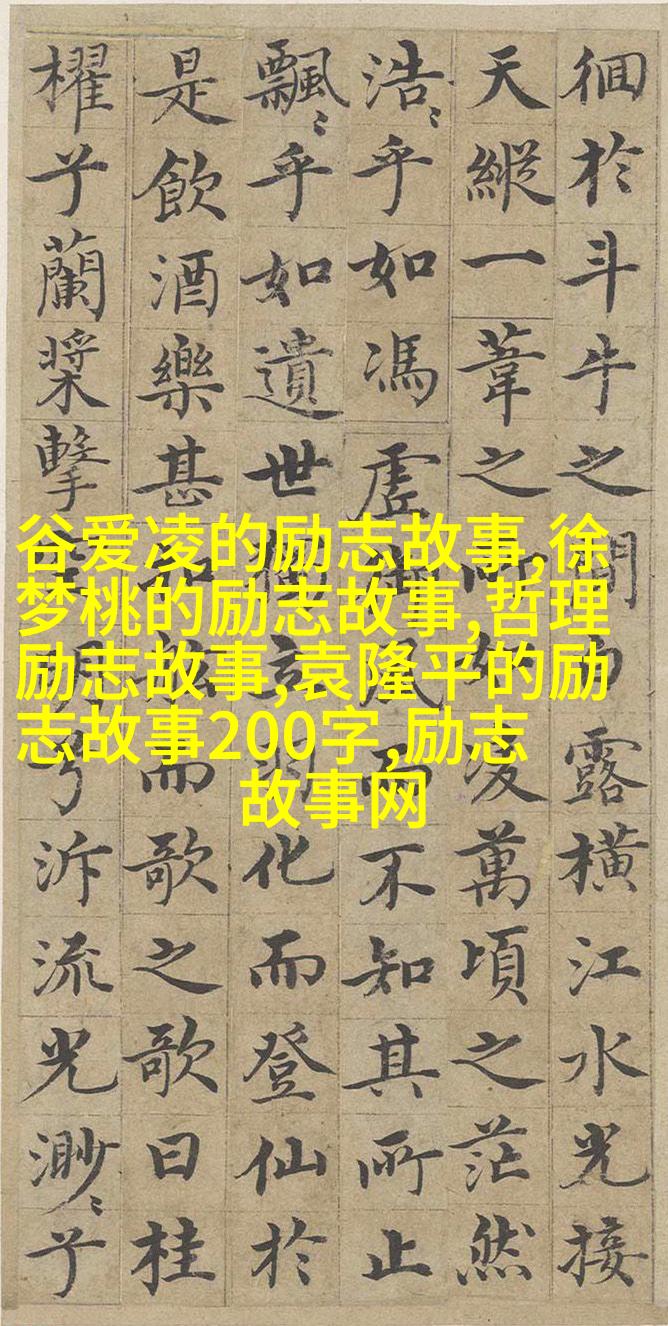 徊於斗牛之間白露橫江水光接
天縱一葦之所如凌萬頃之茫然
浩〻乎如馮虛御風而不知其所止
飄〻乎如遺世獨立羽化而登仙於
是飲酒樂甚扣舷而歌之歌曰桂
櫂兮蘭槳擊空明兮泝流光渺〻兮
谷爱凌的励志故事,徐
梦桃的励志故事,哲理
励志故事,袁隆平的励
志故事200字,励志
故事网